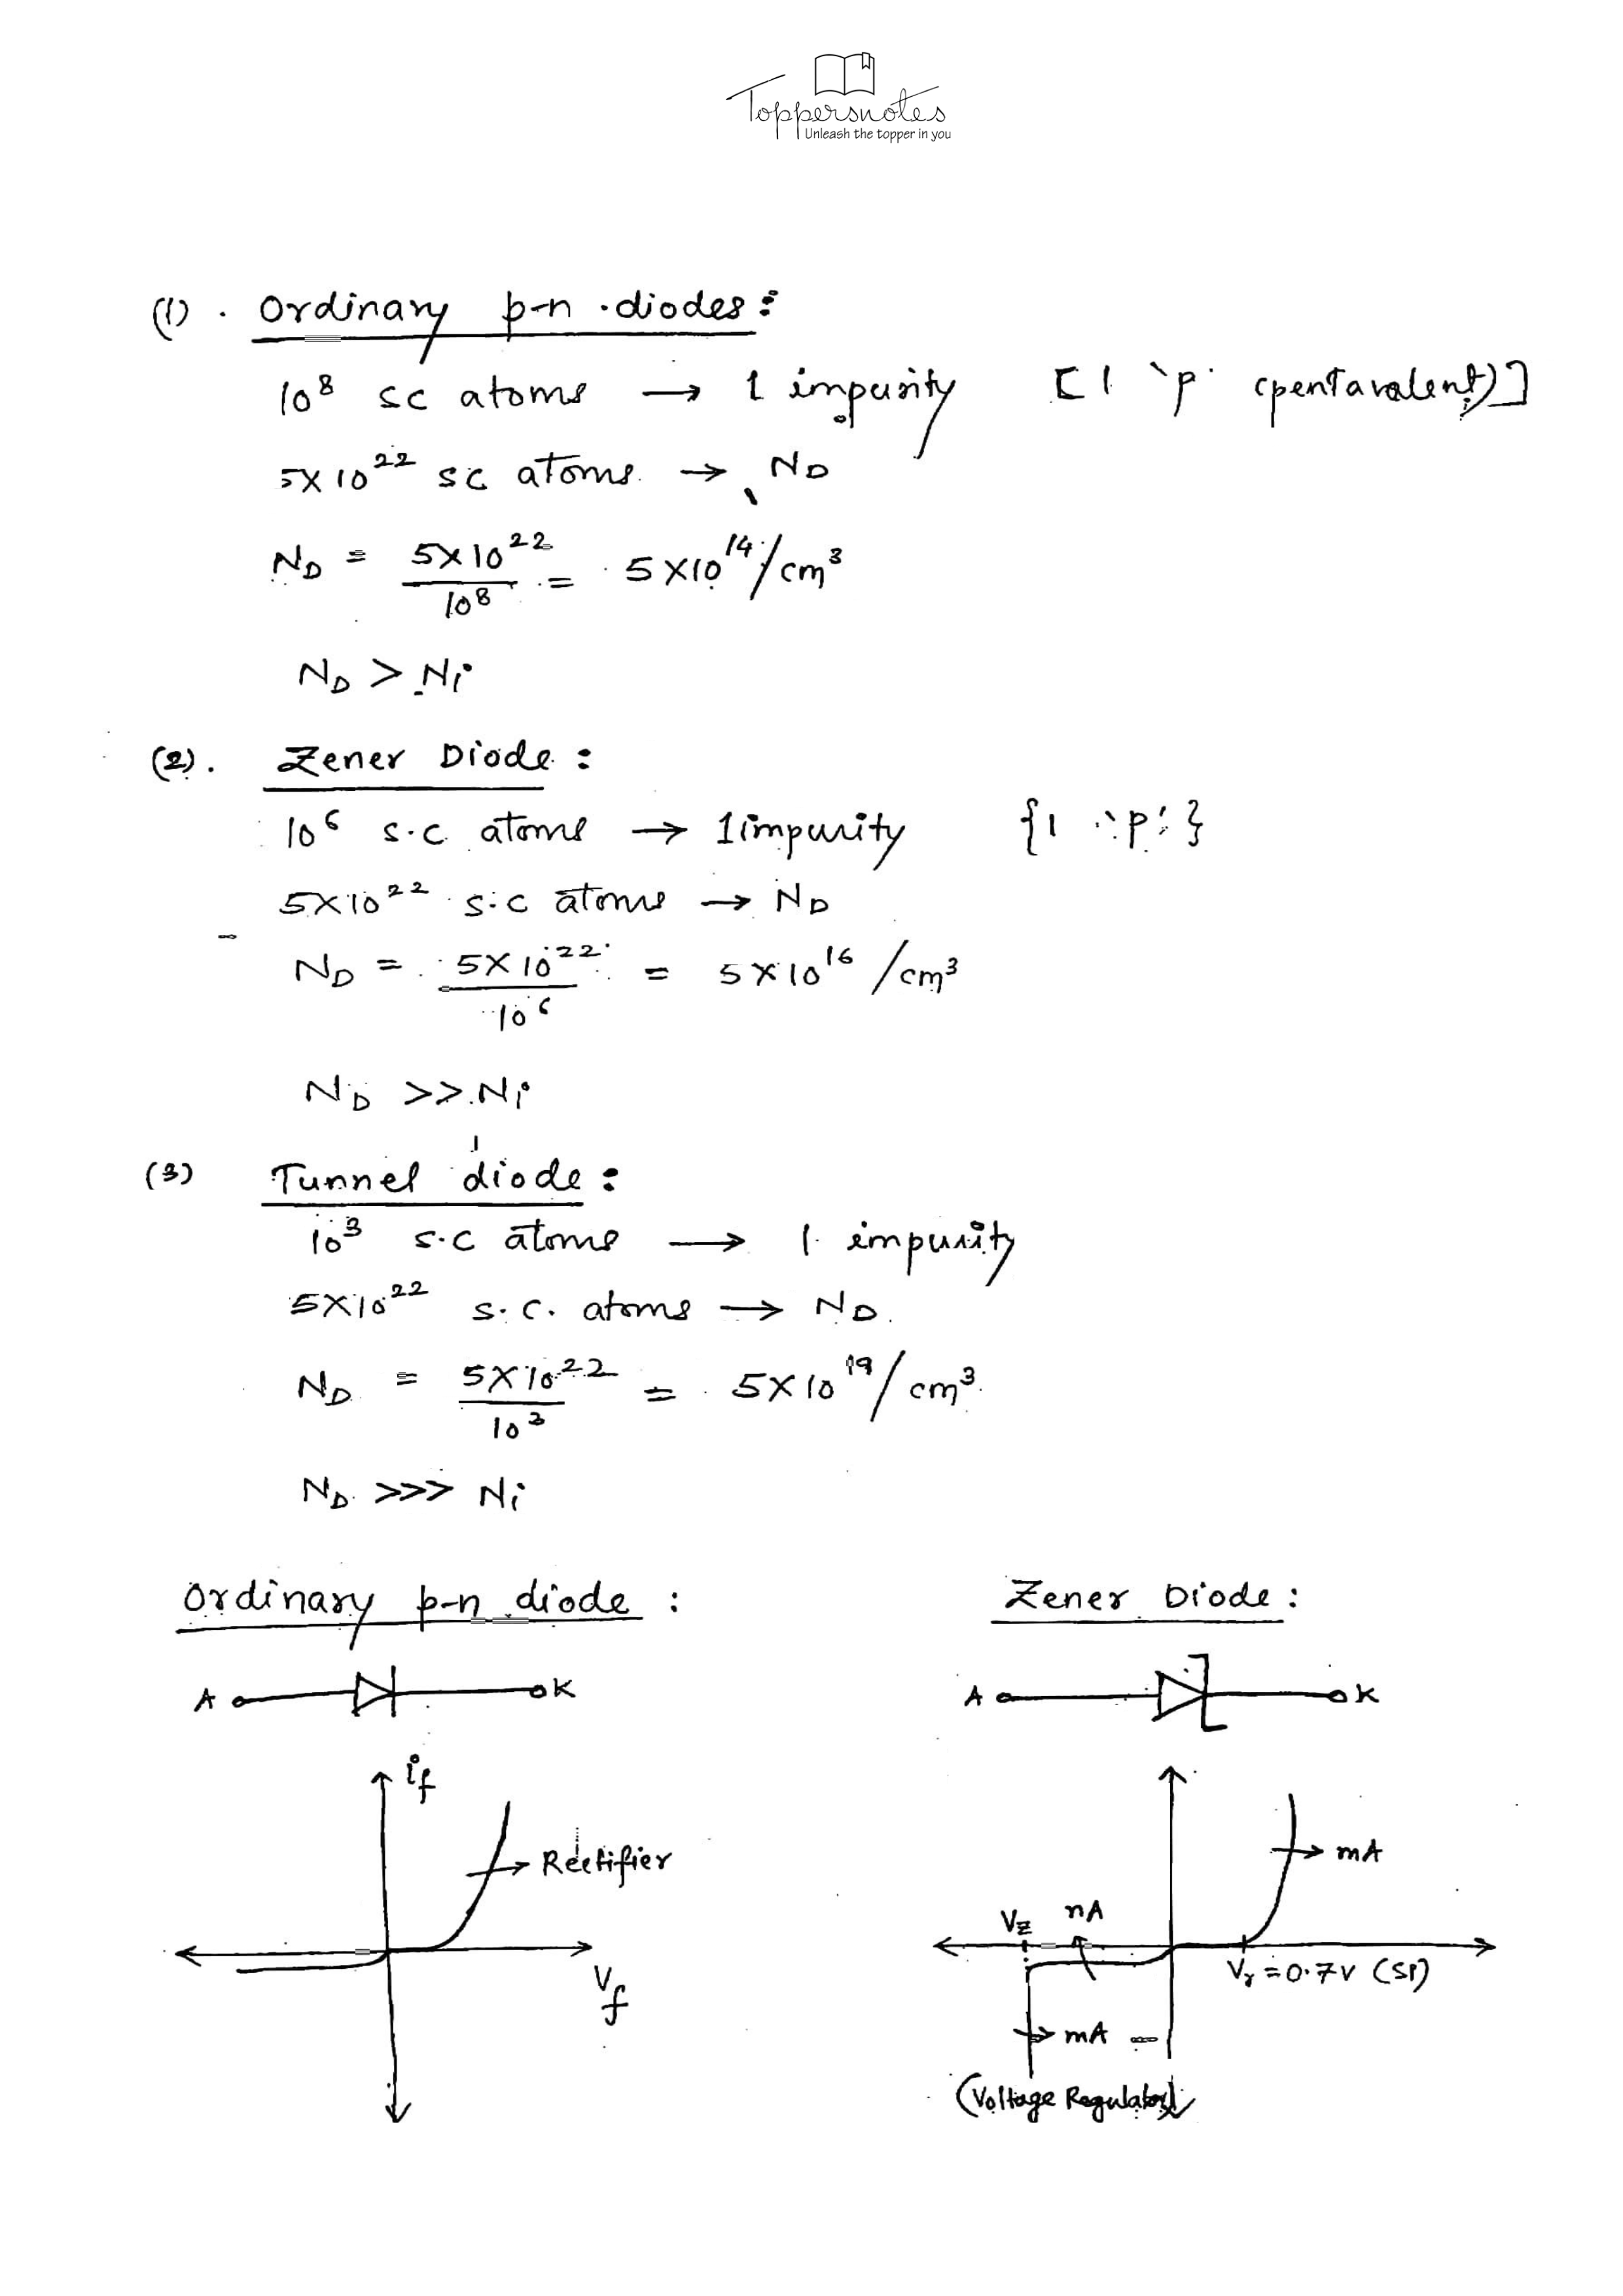 Toppersnotes
Unleash the topper in you
(1). Ordinary p-n diodes:
10⁸ sc atoms → 1 impurity [1 'p' (pentavalent)]
5×10²² sc atoms → N_D
N_D = 5×10²² / 10⁸ = 5×10¹⁴/cm³
N_D > Ni
(2). Zener Diode:
10⁶ s.c atoms → 1 impurity {1 'p'}
5×10²² s.c atoms → N_D
N_D = 5×10²² / 10⁶ = 5×10¹⁶/cm³
N_D >> Ni
(3) Tunnel diode:
10³ s.c atoms → 1 impurity
5×10²² s.c. atoms → N_D.
N_D = 5×10²² / 10³ = 5×10¹⁹/cm³.
N_D >>> Ni
Ordinary p-n diode : Zener Diode:
A K A K
i_f
Rectifier mA
V_Z nA
V_f V_γ = 0.7V (Si)
mA
(Voltage Regulator)